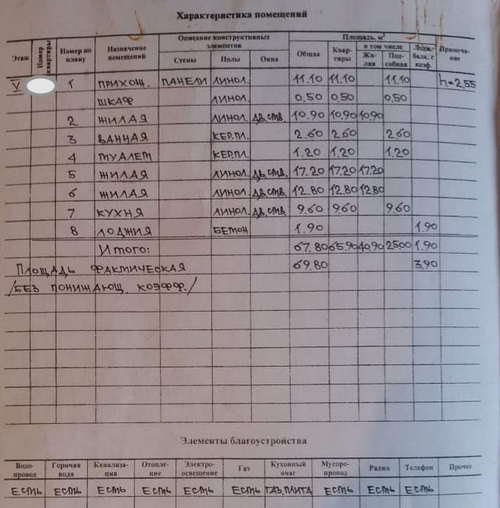 Характеристика помещений
Этаж Номер квартиры Номер по плану Назначение помещений Описание конструктивных элементов Площадь, м² Примечание
Стены Полы Окна Общая Квартиры в том числе Лодж. балк. с коэф.
Жилая Подсобная
V 1 ПРИХОЖ. ПАНЕЛИ ЛИНОЛ. 11.10 11.10 11.10 h=2.55
ШКАФ ЛИНОЛ. 0.50 0.50 0.50
2 ЖИЛАЯ ЛИНОЛ. ДВ.СТВ. 10.90 10.90 10.90
3 ВАННАЯ КЕР.ПЛ. 2.60 2.60 2.60
4 ТУАЛЕТ КЕР.ПЛ. 1.20 1.20 1.20
5 ЖИЛАЯ ЛИНОЛ. ДВ.СТВ. 17.20 17.20 17.20
6 ЖИЛАЯ ЛИНОЛ. ДВ.СТВ. 12.80 12.80 12.80
7 КУХНЯ ЛИНОЛ. ДВ.СТВ. 9.60 9.60 9.60
8 ЛОДЖИЯ БЕТОН 1.90 1.90
ИТОГО: 67.80 65.90 40.90 25.00 1.90
ПЛОЩАДЬ ФАКТИЧЕСКАЯ 69.80 3.90
/БЕЗ ПОНИЖАЮЩ. КОЭФФ./
Элементы благоустройства
Водопровод Горячая вода Канализация Отопление Электроосвещение Газ Кухонный очаг Мусоропровод Радио Телефон Прочее
ЕСТЬ ЕСТЬ ЕСТЬ ЕСТЬ ЕСТЬ ЕСТЬ ГАЗ.ПЛИТА ЕСТЬ ЕСТЬ ЕСТЬ